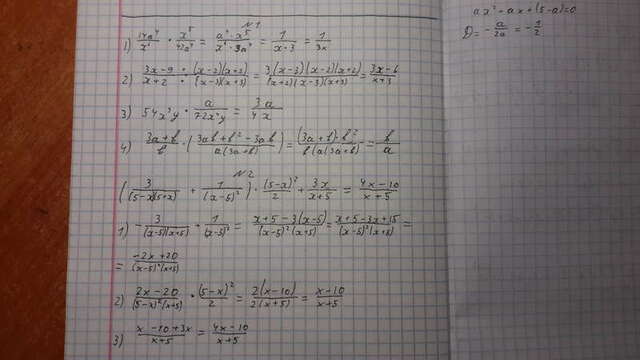 N1
1) 14a⁴/x⁶ · x⁵/42a⁴ = a⁴·x⁵/x⁶·3a⁴ = 1/x·3 = 1/3x
2) 3x-9/x+2 · (x-2)(x+2)/(x-3)(x+3) = 3(x-3)(x-2)(x+2)/(x+2)(x-3)(x+3) = 3x-6/x+3
= 3a/4x
4) 3a+b/b · (3ab+b²-3ab/a(3a+b)) = (3a+b)·b²/b(a(3a+b)) = b/a
N2
(3/(5-x)(5+x) + 1/(x-5)²) · (5-x)²/2 + 3x/x+5 = 4x-10/x+5
1) -3/(x-5)(x+5) + 1/(x-5)² = x+5-3(x-5)/(x-5)²(x+5) = x+5-3x+15/(x-5)²(x+5) =
= -2x+20/(x-5)²(x+5)
2) 2x-20/(5-x)²(x+5) · (5-x)²/2 = 2(x-10)/2(x+5) = x-10/x+5
3) x-10+3x/x+5 = 4x-10/x+5
ax²-ax+(5-a)=0
D=-a/2a = -1/2